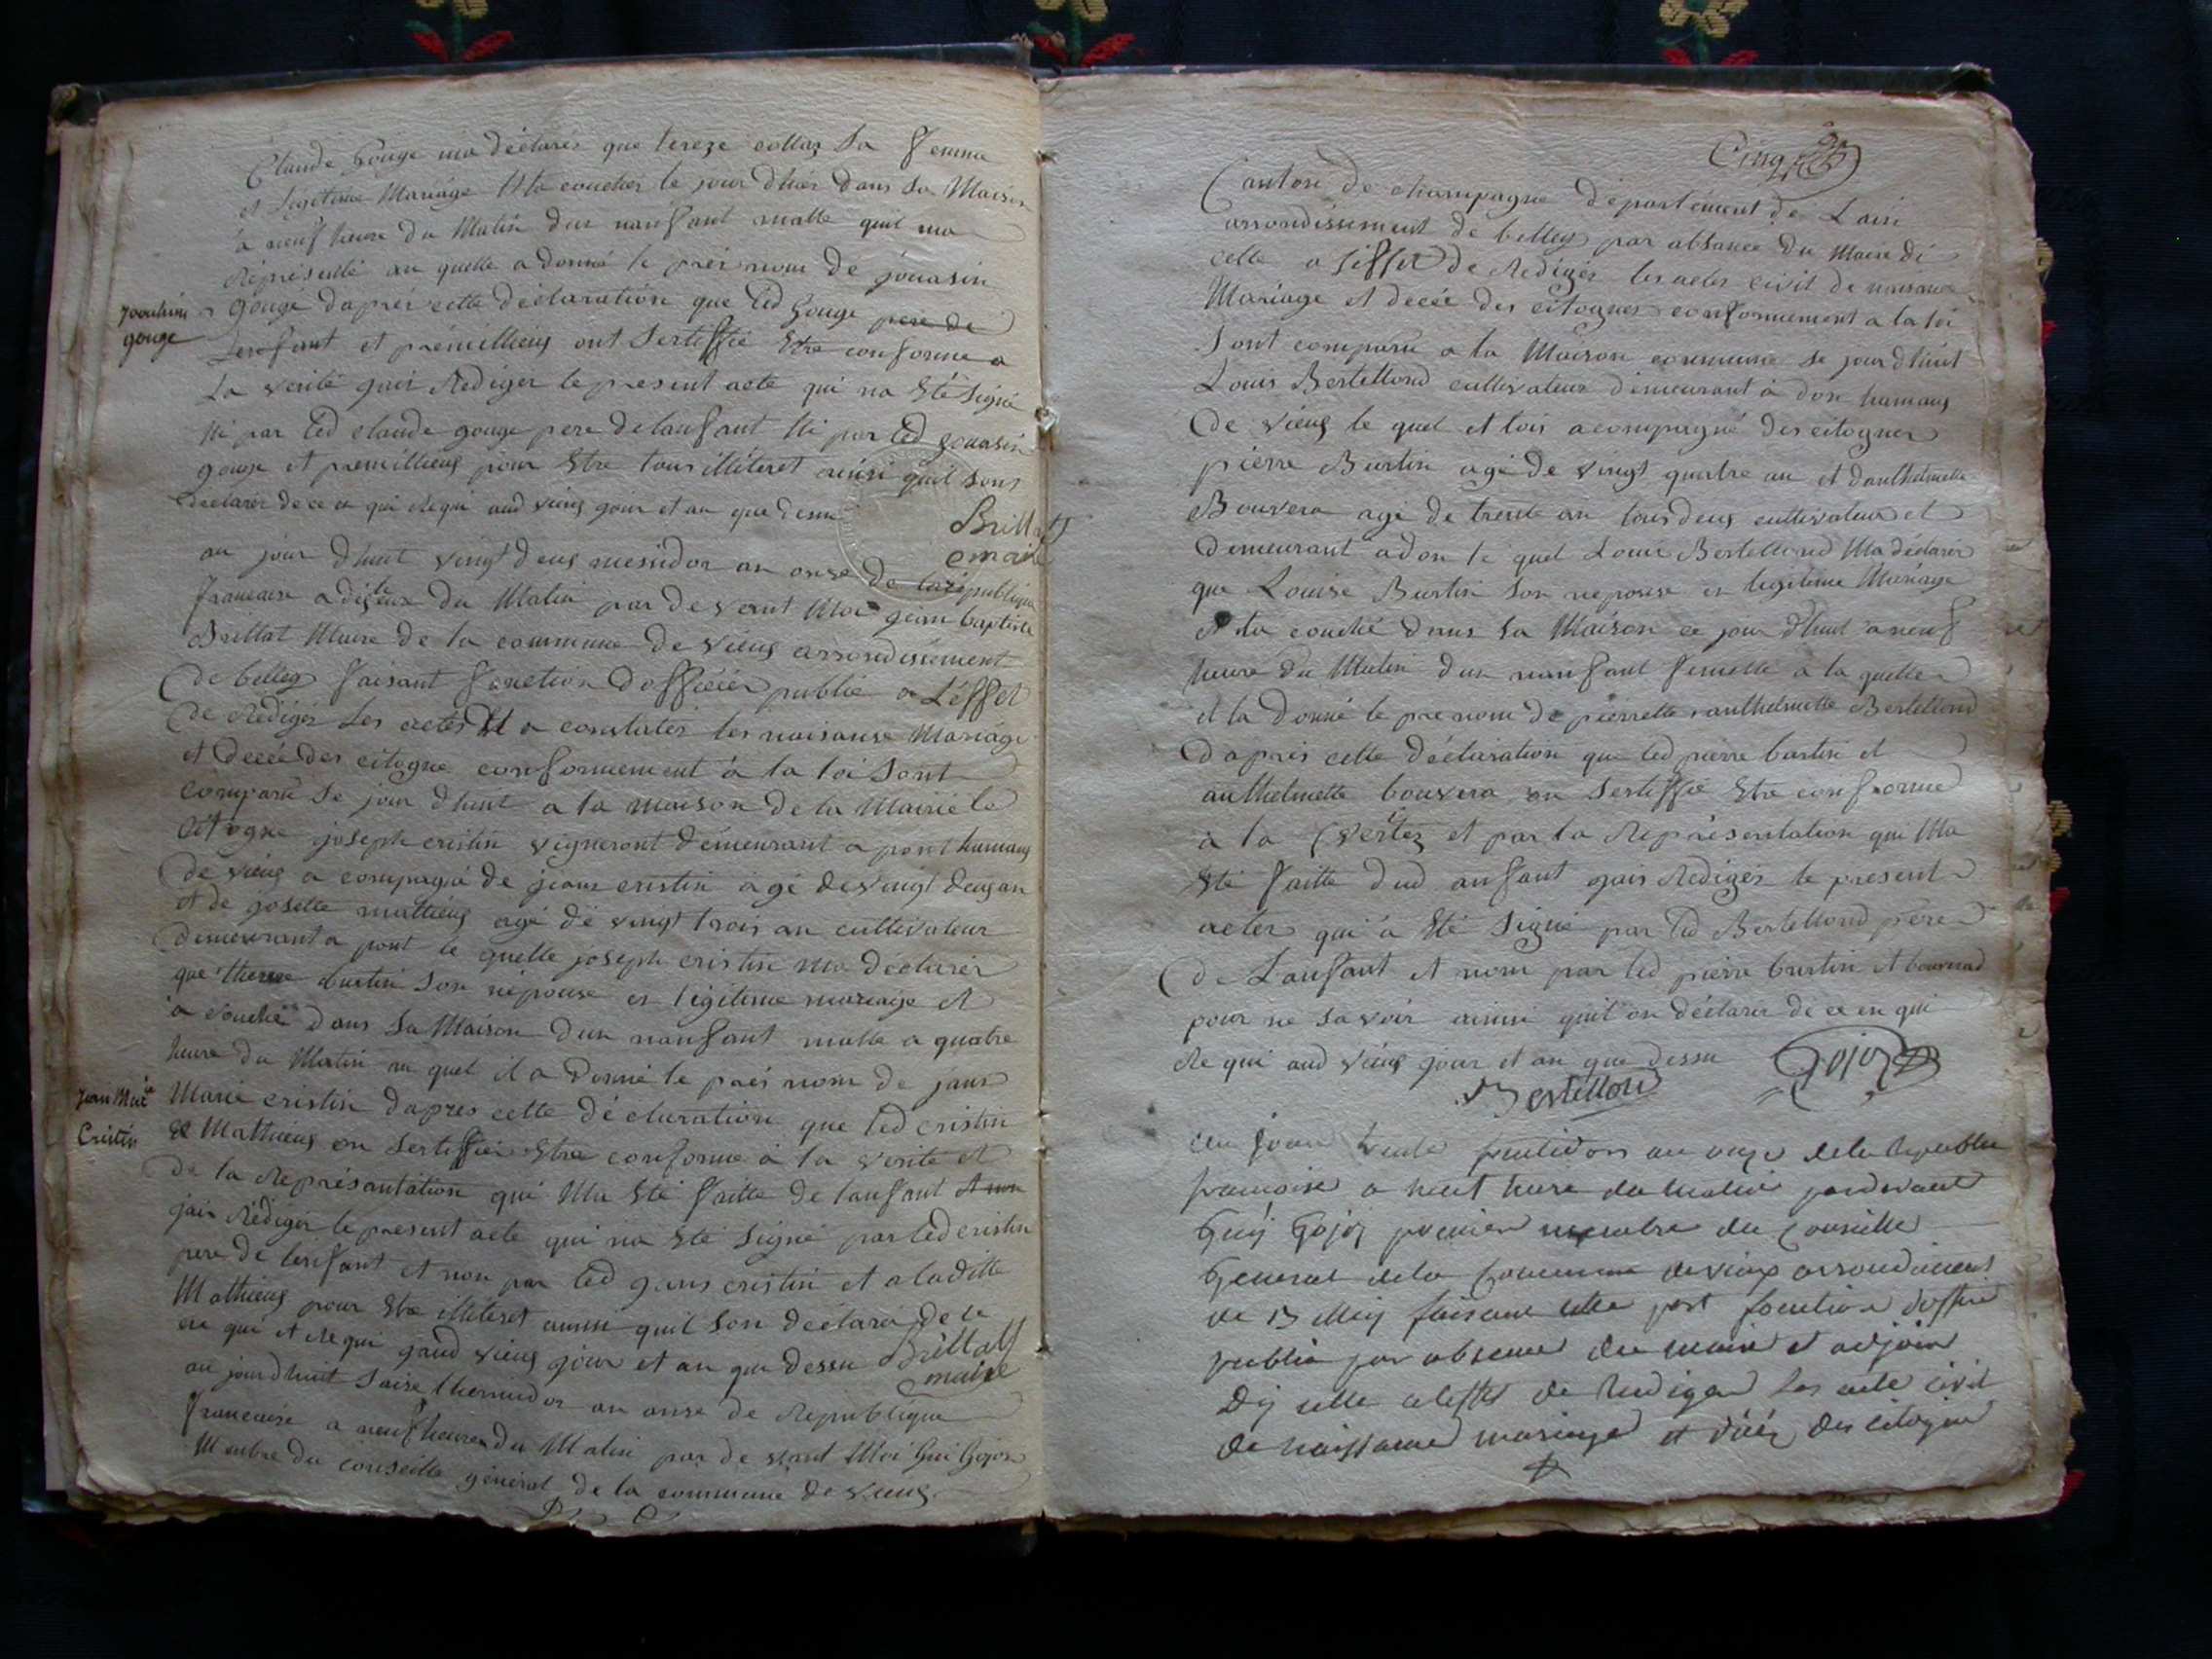 Claude Gouge ma déclarés que tereze collaz Sa femme
et Legitime Mariage Et la couchér le jour dhiér dans Sa Maison
à neuf heure du Matin dun nanfant malle quil ma
Réprésenté au quelle a donné le prér nom de jouasin
Joachim
gouge
gouge daprér cette déclaration que led Gouge pere de
Lenfant et prémillieux ont Sertiffié Etre conforme a
La verité gair Rediger le present acte qui na Eté Signé
Ni par led claude gouge pere delanfant Ni par led gouasin
gouge et premillieux pour Etre tous illiteret ainsi quil sont
déclarér de ce en qui Requi aud vieux gour et an que dessu
Brillat
maire
au jour dhuit vingt deux messidor an onse de la république
francaise a dix heure du Matin par devant Moi gean baptiste
Brillat Maire de la commune de vieux arrondissement
de belley faisant fonction dofficier public a Léffet
de rédigér Les actes Et a constatér les naisanse Mariage
et decée des citogne conformement à la loi Sont
comparu Se jour dhuit a la maison de la Mairie le
Citogne joseph cristin vigneront démeurant a pont hamaux
de vieux a compagné de jeans cristin agé de vingt deux an
et de josette mathieux agé dé vingt trois an cultivateur
demeurant a pont le quelle joseph cristin ma déclarér
que therese burtin Son népouse en légitime mariage et
à couché dans Sa Maison dun nanfant malle a quatre
heure du Matin au quel il a donné le préi nom de jans
Jean Marie
Cristin
Marie cristin dapres cette déclaration que led cristin
et Mathieux on Sertiffiér Etre conforme à la verité et
de la Représantation qui Ma Eté faitte de lanfant et non
jair Rédigér le present acte qui na Eté Signé par led cristin
pere de lenfant et non par led gans cristin et a laditte
Mathieux pour Etre illiteret ainsi quil Son déclaré de ce
en qui et Requi gaud vieux gour et an que dessu Brillat
maire
au jourdhuit Saise thermidor an onse de Republique
francaise a neuf heure du Matin par de vant Moi Gui Gojoz
Membre du conseille général de la commune de vieux
Cinq
Canton de champagne département de Lain
arrondissement de belley par absance du Maire di
celle a Leffet de Redigér les actes civil de naisance
Mariage et decée des citognes conformement a la loi
Sont comparu a la Maison commune Se jour dhuit
Louis Bertellond cultivateur démeurant à don hamaux
de vieux le quel et lois acompagné des citognes
pierre Burtin agé de vingt quatre an et danthelmette
Bouvera agé de trente an tous deux cultivateur et
demeurant a don le quel Loui Bertellond Ma déclarér
que Louise Burtin Son nepouse en legitime Mariage
et la couché dans Sa Maison ce jour dhuit a neuf
heure du Matin dun nanfant femelle a la quelle
et la donné le pre nom de pierrette anthelmette Bertellond
daprés cette déclaration que led pierre burtin et
anthelmette bouvera on Sertiffié Etre conforme
à la veritez et par la Représentation qui Ma
Eté faitte dud anfant gair Redigér le present
actes qui a Eté Signé par led Bertellond pére
de Lanfant et nom par led pierre burtin et bouverad
pour ne Savoir ainsi quil on déclarér de ce en qui
Re qui aud vieux jour et an que dessu Gojoz
Bertellond
au jour trente fructidors an onze de la Republi
francoise a huit heure du matin pardevant
Guy Gojoz premier membre du Conseille
General de la Commune de vieux arrondiment
de Belley faisant fonction doffice
public par absence du maire et adjoin
Dy celle a leffet de Rediger les acte civil
de naissance mariage et décéz des citoyen